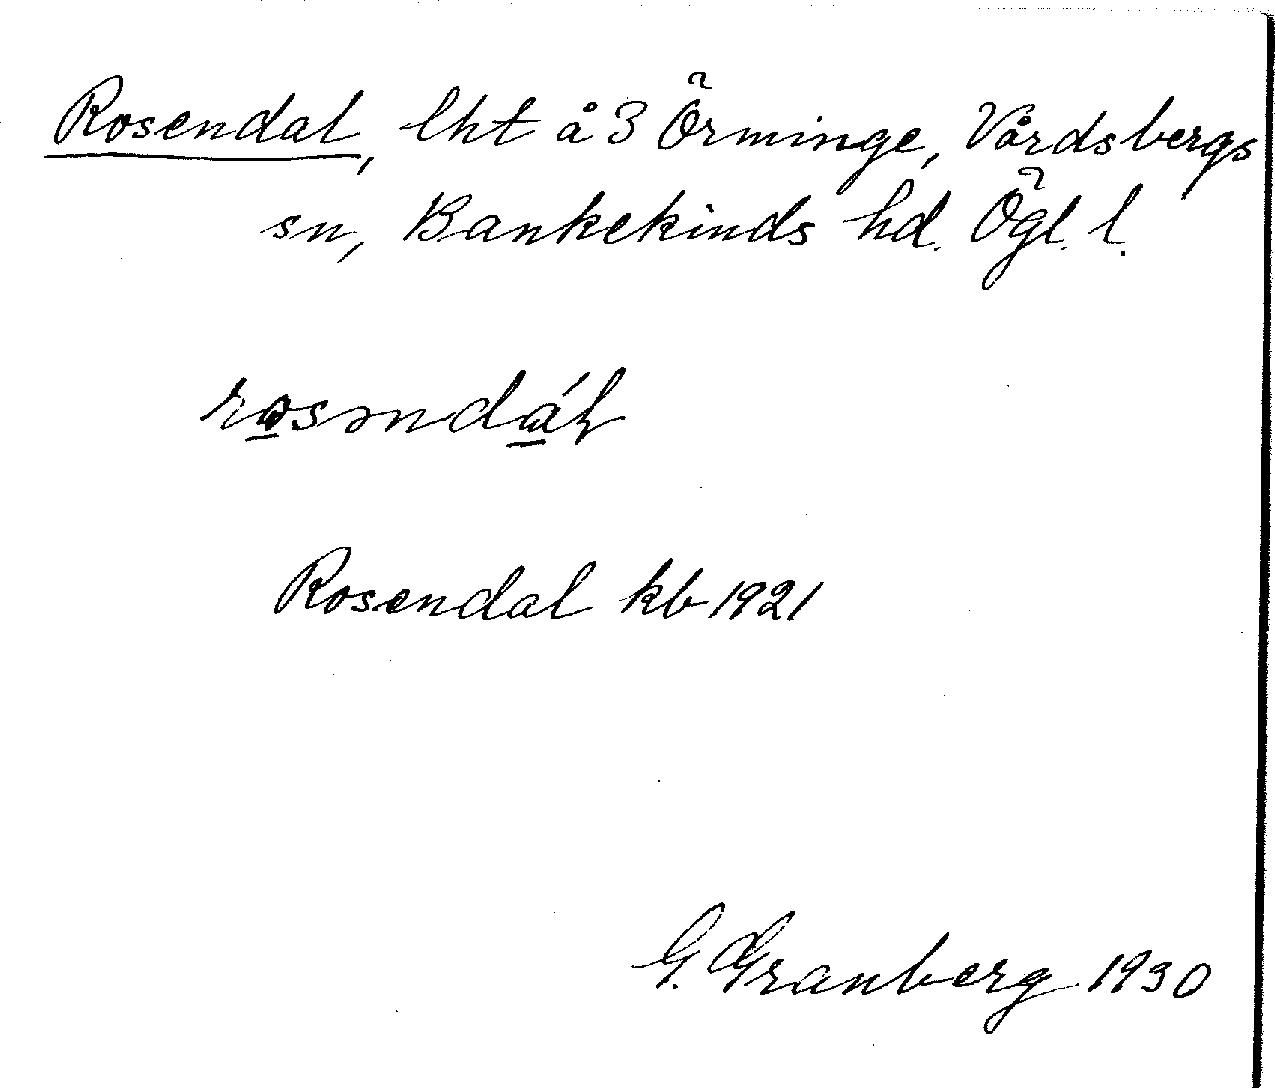 Rosendal, lht å 3 Örminge, Vårdsbergs
sn, Bankekinds hd. Ögl. l.
rosəndál
Rosendal kb 1921
G. Granberg 1930